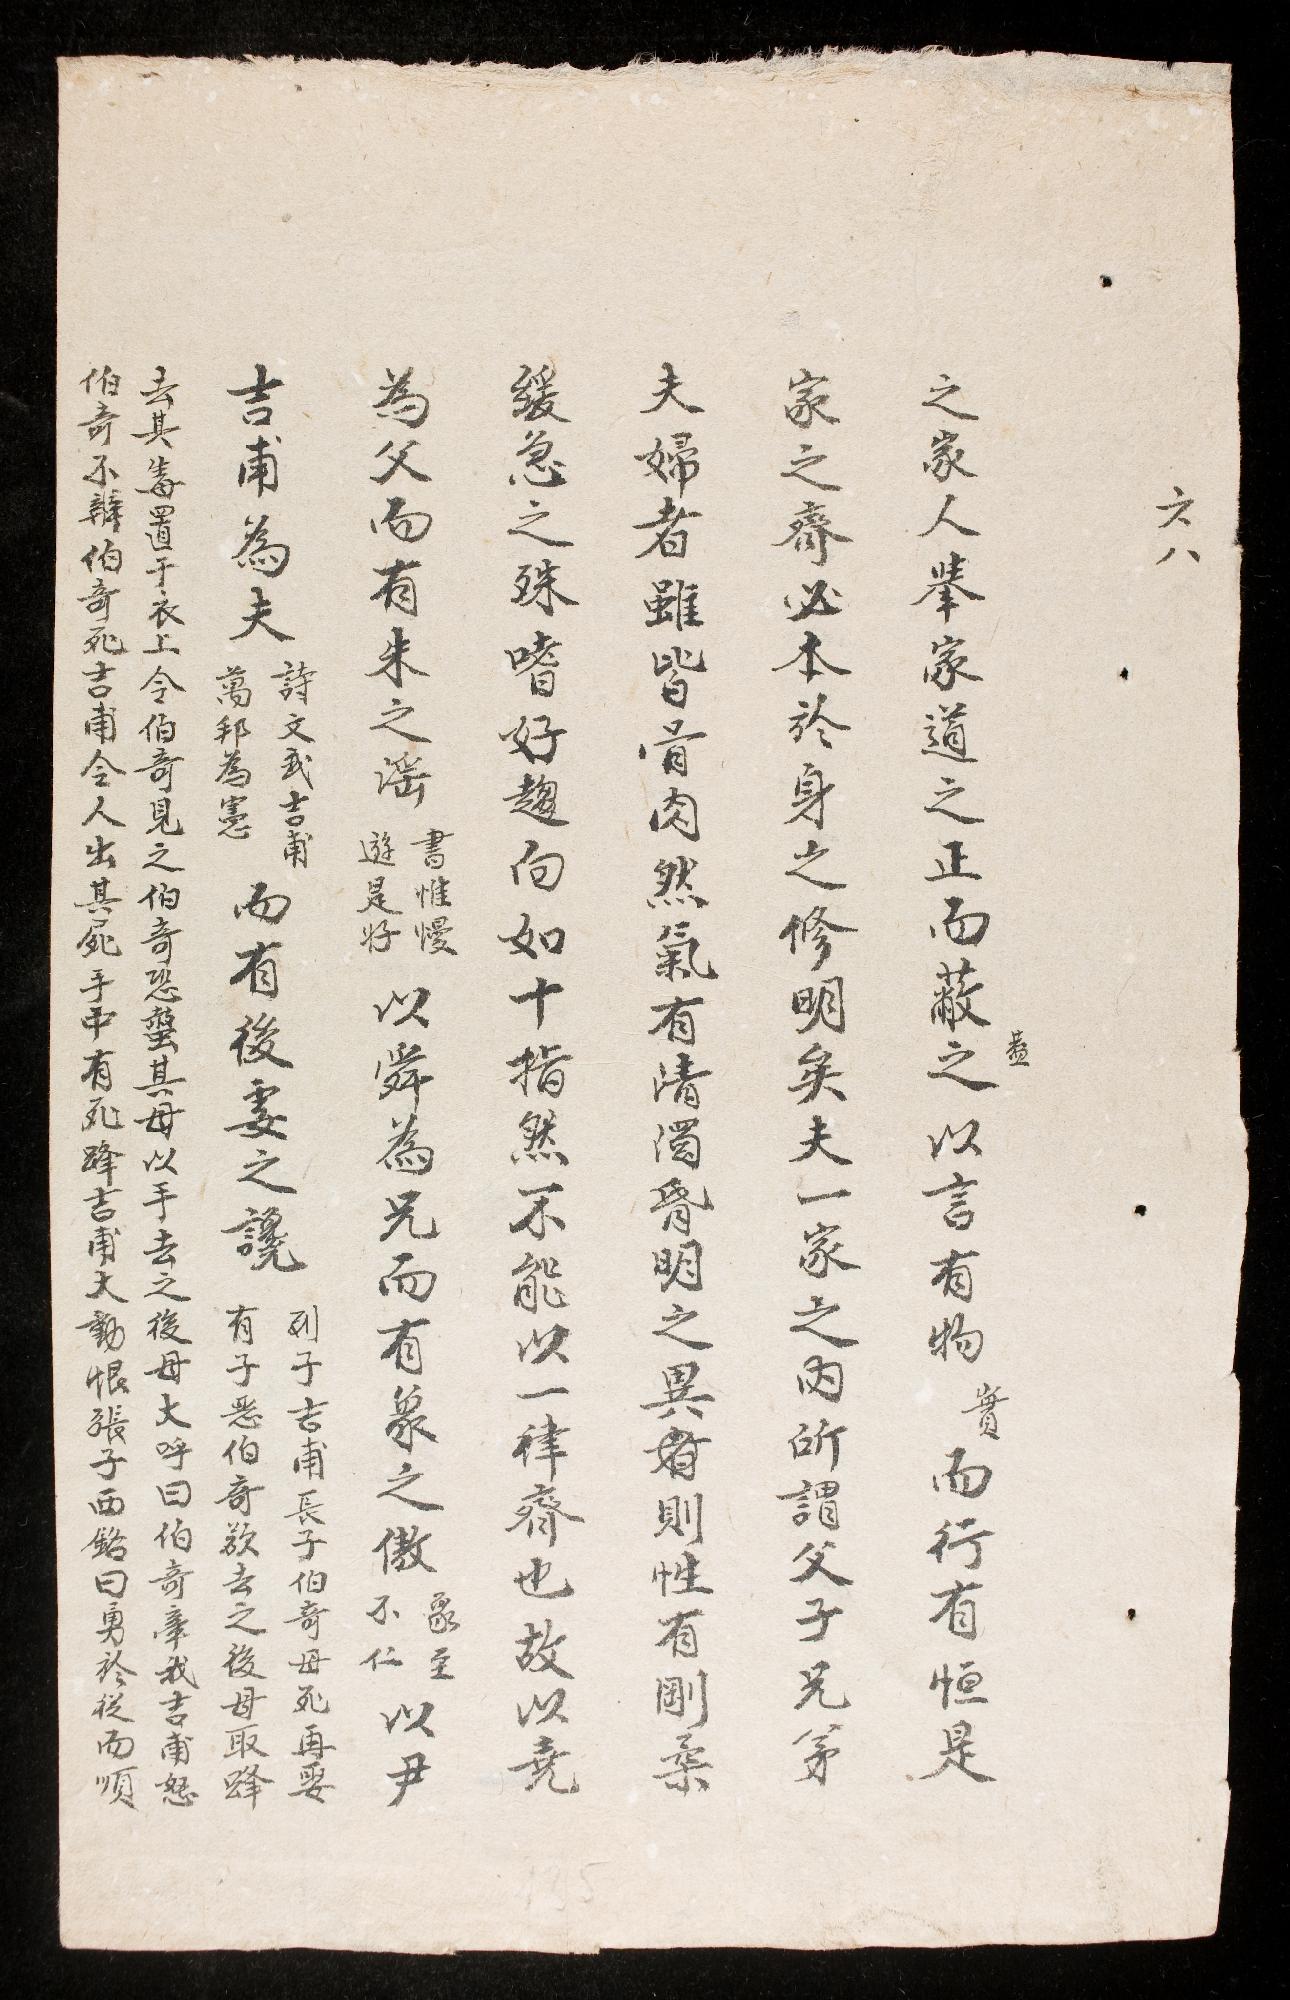 六八
之家人擧家道之正而蔽之以言有物實而行有恒是
盡
家之齊必本於身之修明矣夫一家之內所謂父子兄弟
夫婦者雖皆骨肉然氣有清濁昏明之異者則性有剛柔
緩急之殊嗜好趨向如十指然不能以一律齊也故以堯
為父而有朱之滛
書惟慢
遊是好
以舜為兄而有象之傲
象至
不仁
以尹
吉甫為夫
詩文武吉甫
萬邦為憲
而有後妻之讒
列子吉甫長子伯奇母死再娶
有子恶伯奇欲去之後母取蜂
去其毒置于衣上令伯奇見之伯奇恐螫其母以手去之後母大呼曰伯奇牽我吉甫怒
伯奇不辨伯奇死吉甫令人出其屍手中有死蜂吉甫大動恨張子西銘曰勇於從而順